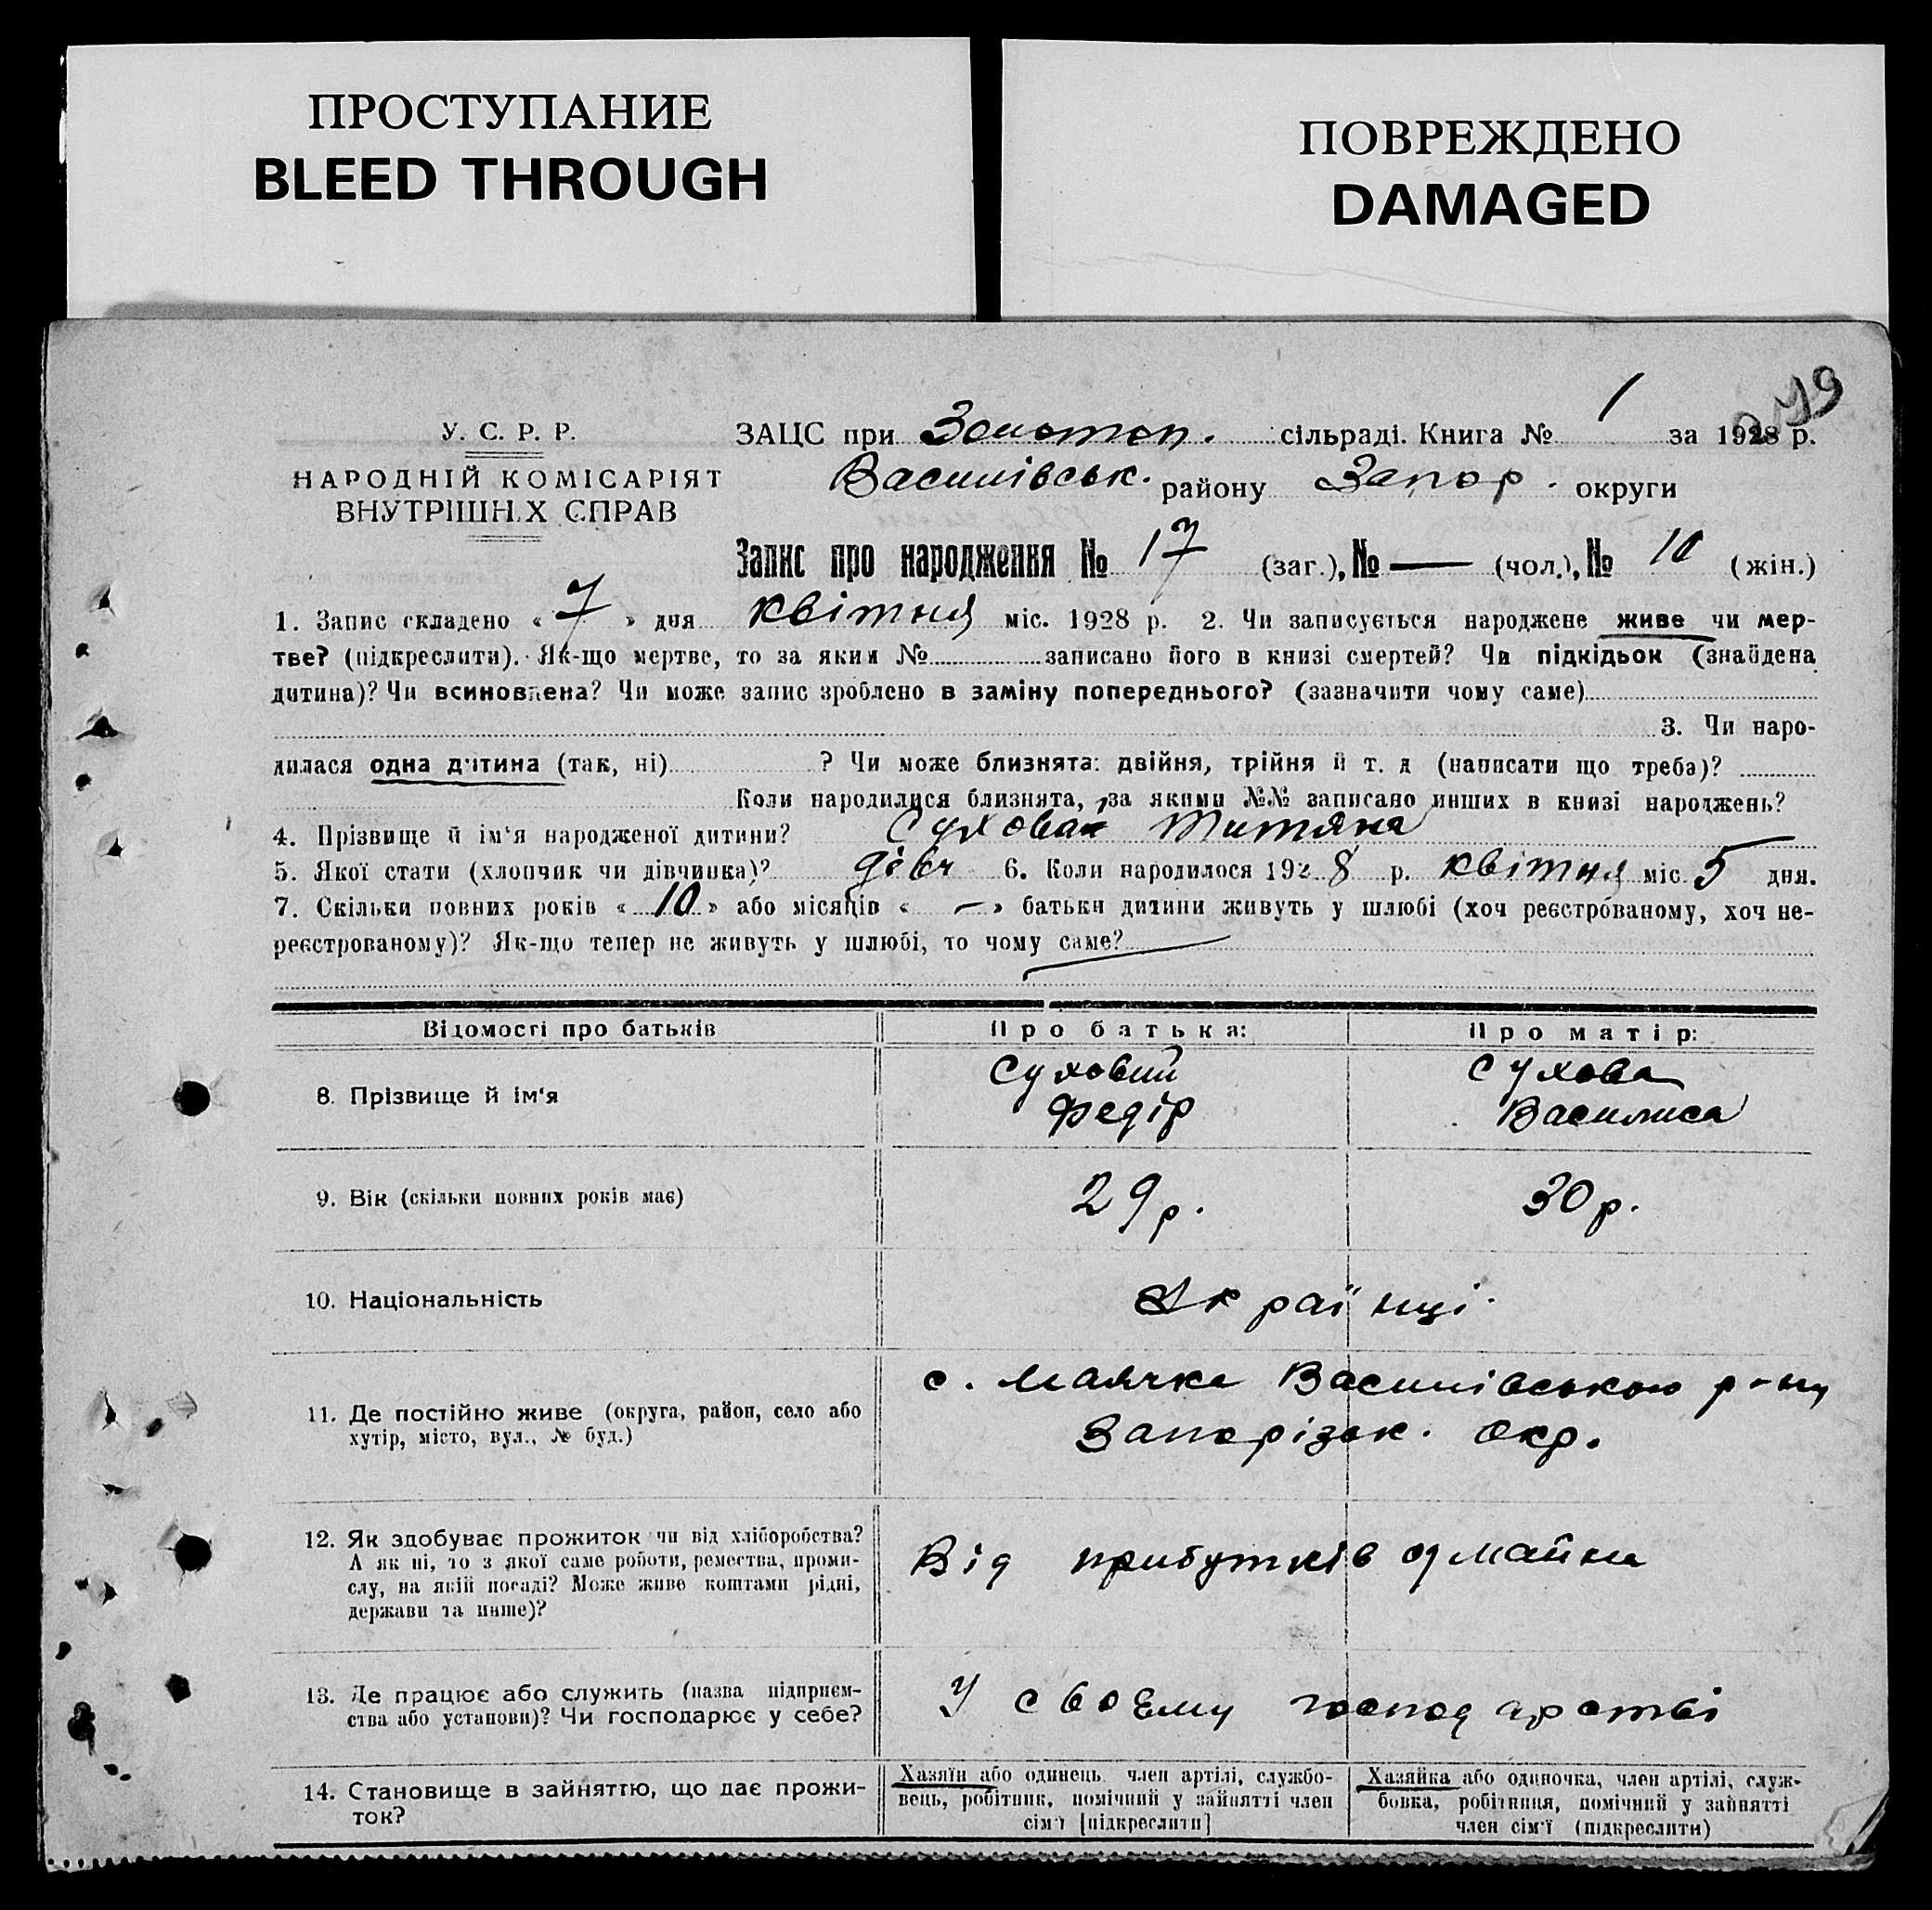 ПРОСТУПАНИЕ
BLEED THROUGH
ПОВРЕЖДЕНО
DAMAGED
279
У. С. Р. Р.
НАРОДНІЙ КОМІСАРІЯТ
ВНУТРІШНІХ СПРАВ
ЗАЦС при Золотоп. сільраді. Книга № 1 за 1928 р.
Василівськ. району Запор. округи
Запис про народження № 17 (заг.), № — (чол.), № 10 (жін.)
1. Запис складено « 7 » дня квітня міс. 1928 р. 2. Чи записується народжене живе чи мер-
тве? (підкреслити). Як-що мертве, то за яким № записано його в книзі смертей? Чи підкідьок (знайдена
дитина)? Чи всиновлена? Чи може запис зроблено в заміну попереднього? (зазначити чому саме)
3. Чи наро-
дилася одна дитина (так, ні) ? Чи може близнята: двійня, трійня й т. д (написати що треба)?
Коли народилися близнята, за якими №№ записано инших в книзі народжень?
4. Прізвище й ім‘я народженої дитини? Сухова Титяна
5. Якої стати (хлопчик чи дівчинка)? дівч 6. Коли народилося 1928 р. квітня міс. 5 дня.
7. Скільки повних років « 10 » або місяців « — » батьки дитини живуть у шлюбі (хоч реєстрованому, хоч не-
реєстрованому)? Як-що тепер не живуть у шлюбі, то чому саме?
Відомості про батьків
Про батька:
Про матір:
8. Прізвище й ім‘я
Суховий
Федір
Сухова
Василиса
9. Вік (скільки повних років має)
29 р.
30 р.
10. Національність
Українці.
11. Де постійно живе (округа, район, село або
хутір, місто, вул., № буд.)
с. Маячка Василівського р-ну
Запорізьк. окр.
12. Як здобуває прожиток чи від хліборобства?
А як ні, то з якої саме роботи, ремества, проми-
слу, на якій посаді? Може живе коштами рідні,
держави та инше)?
Від прибутків з майна
13. Де працює або служить (назва підприєм-
ства або установи)? Чи господарює у себе?
У своєму господарстві
14. Становище в зайняттю, що дає прожи-
ток?
Хазяїн або одинець член артілі, службо-
вець, робітник, помічний у зайнятті член
сім‘ї [підкреслити]
Хазяйка або одиночка, член артілі, служ-
бовка, робітниця, помічний у зайнятті
член сім‘ї (підкреслити)